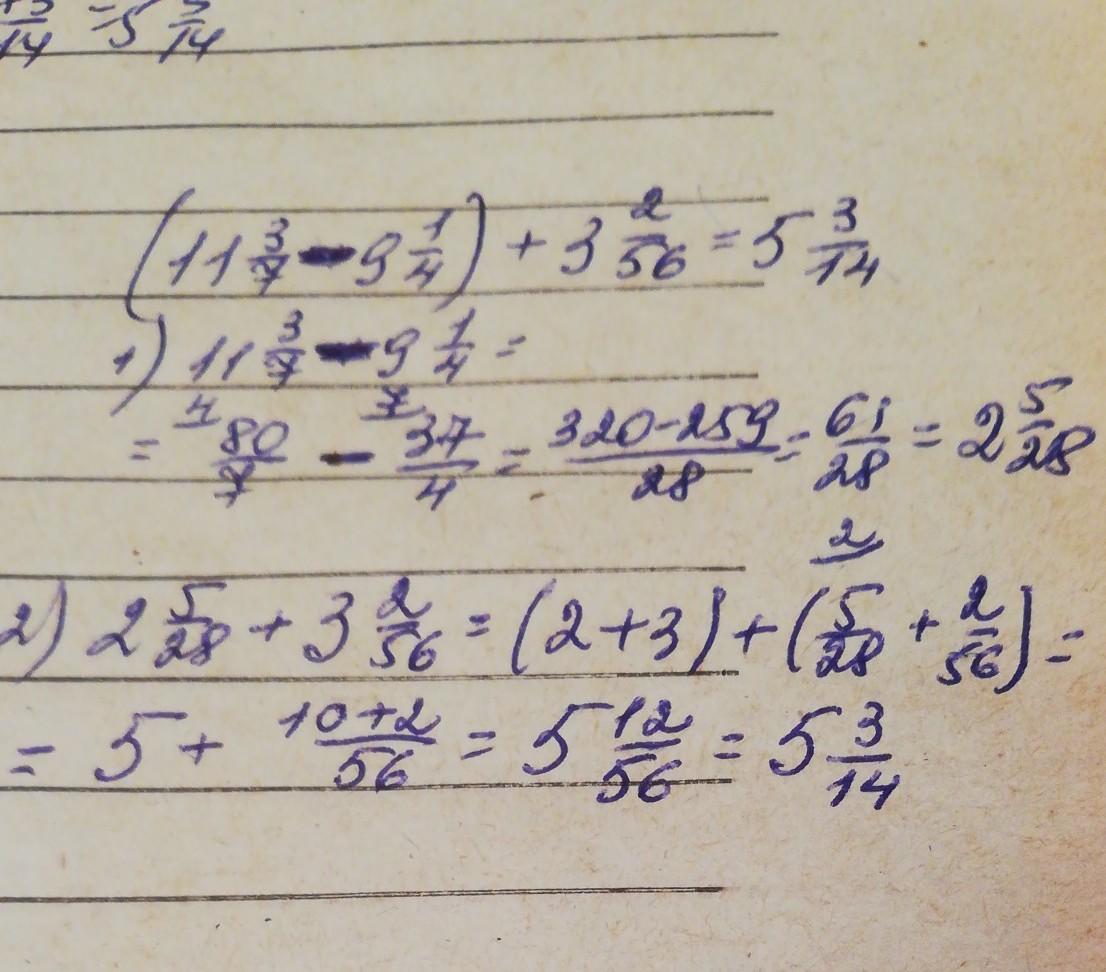 +3/14 = 5 3/14
(11 3/7 - 9 1/4) + 3 2/56 = 5 3/14
1) 11 3/7 - 9 1/4 =
4 7
= 80/7 - 37/4 = 320-259/28 = 61/28 = 2 5/28
2
2) 2 5/28 + 3 2/56 = (2+3) + (5/28 + 2/56) =
= 5 + 10+2/56 = 5 12/56 = 5 3/14